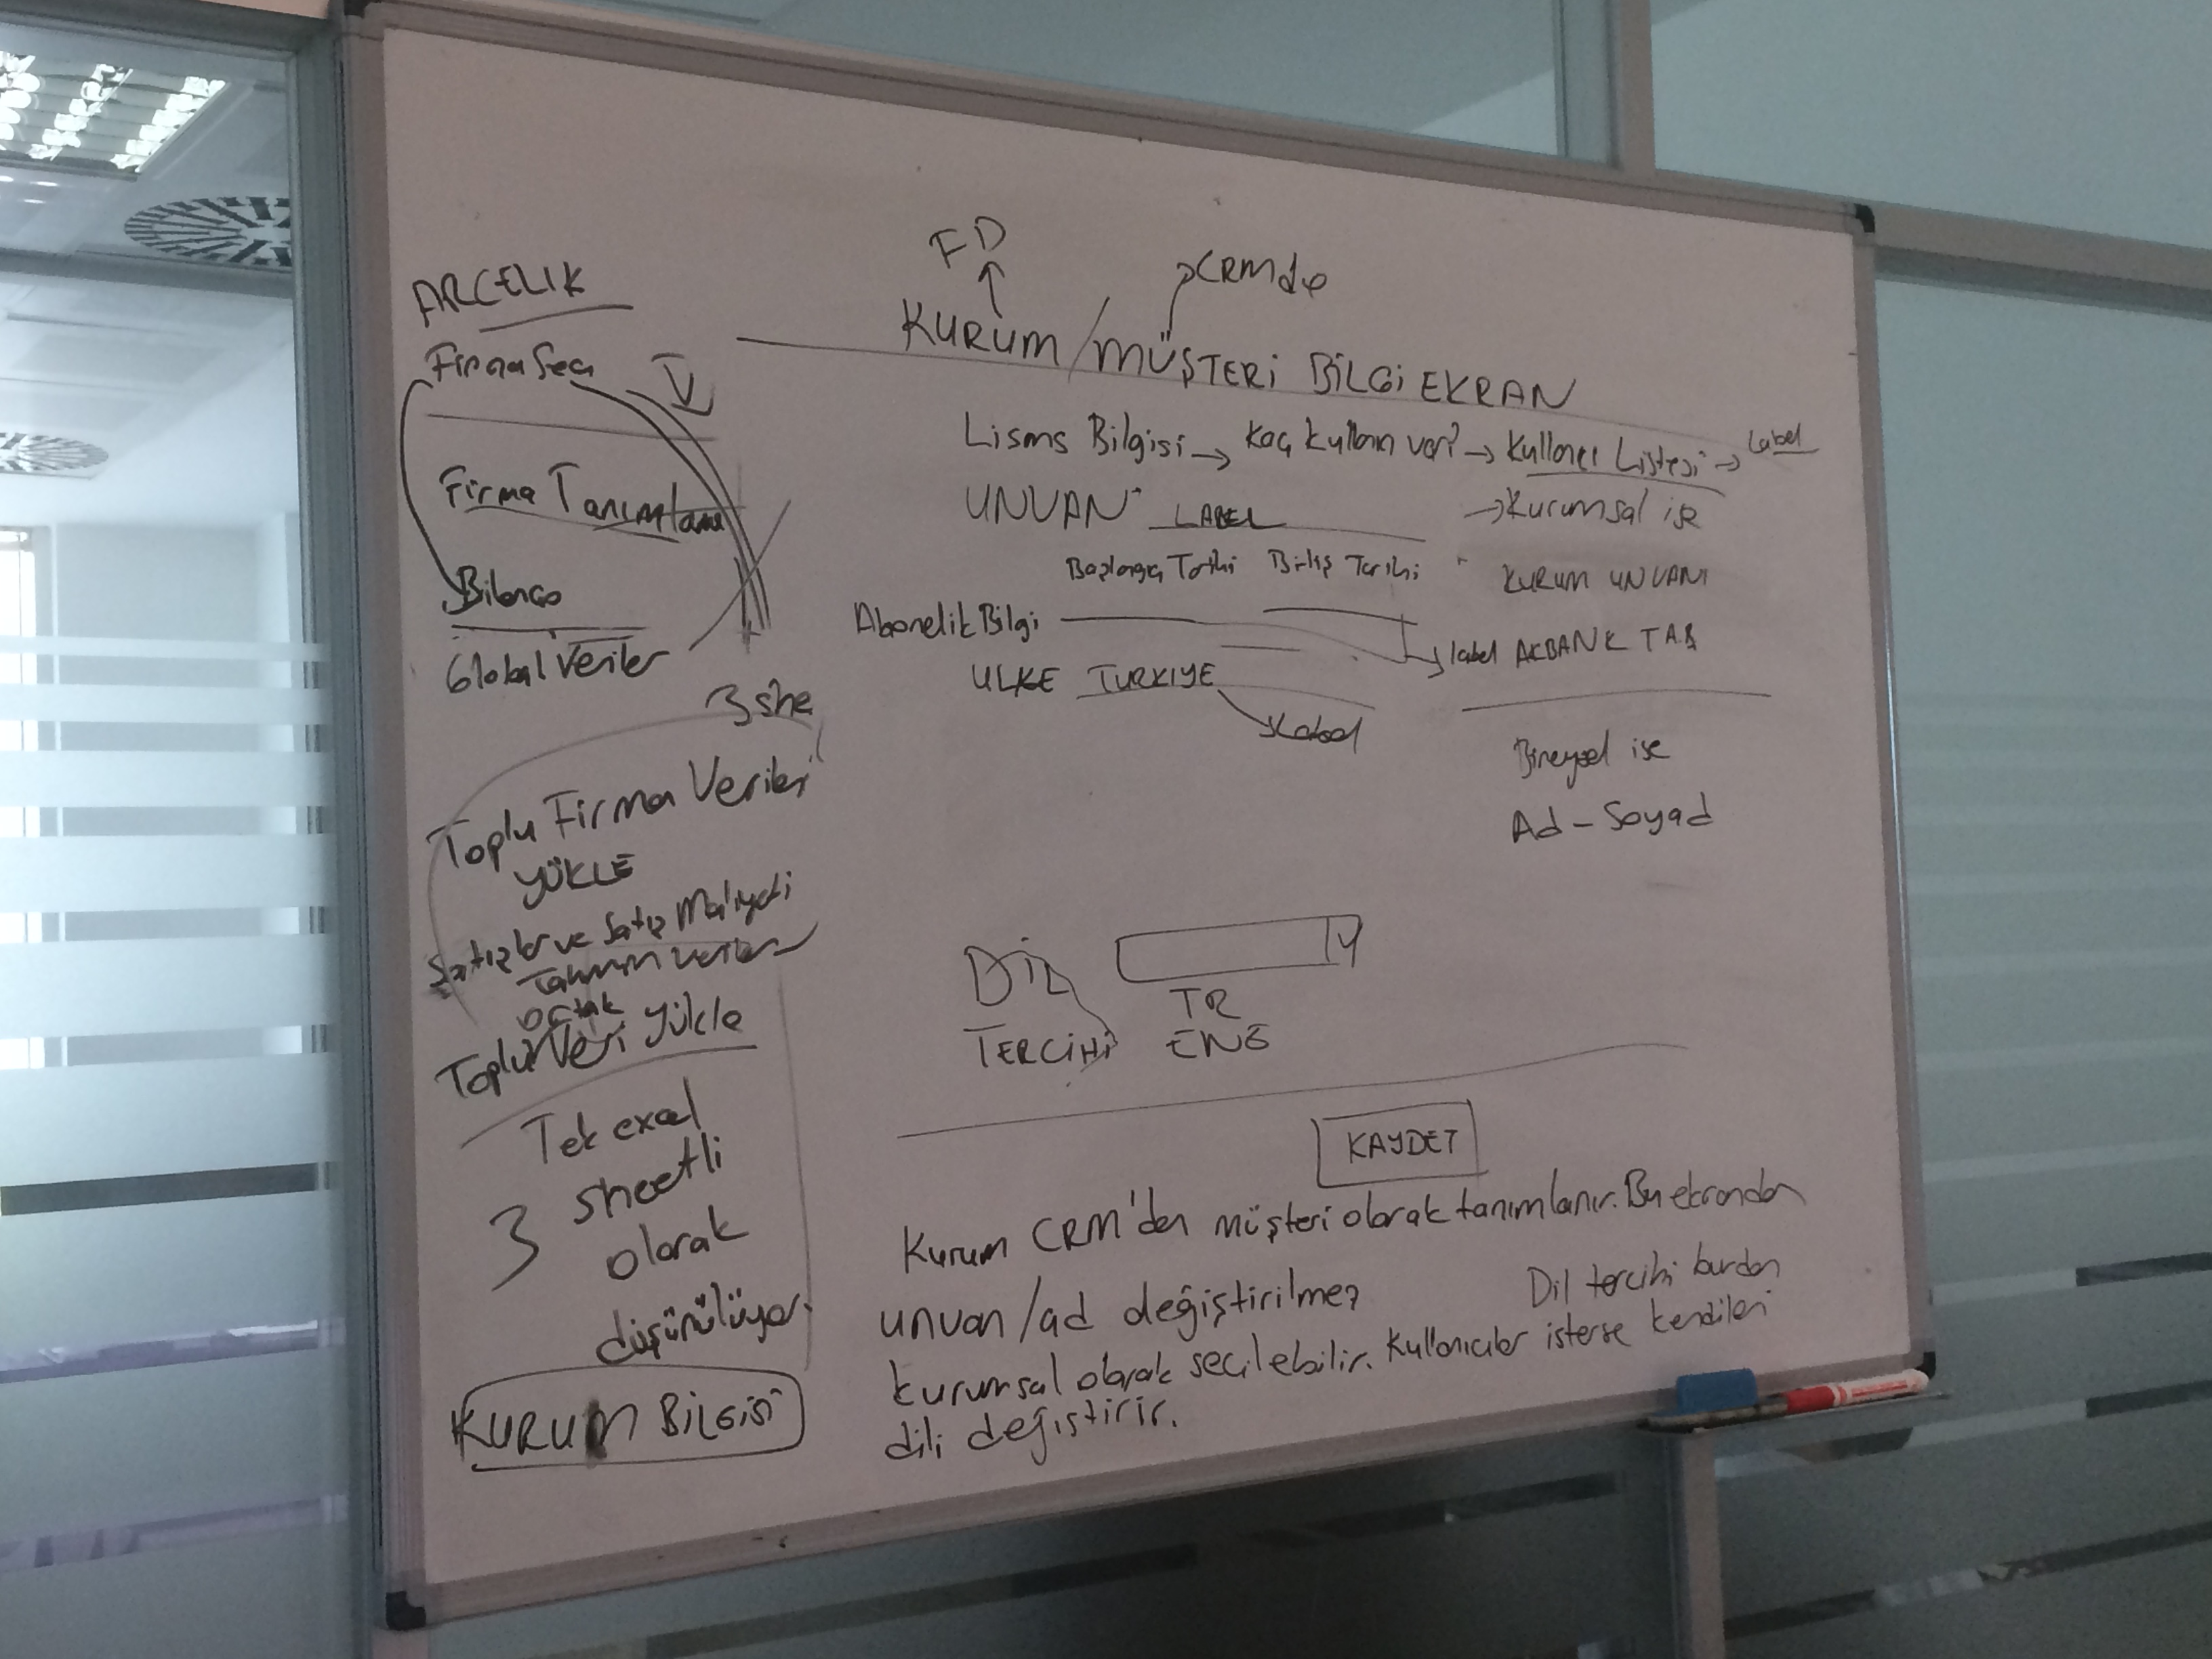 ARCELIK
Firma Seç
Firma Tanımlama
Bilanço
Global Veriler
3 she
Toplu Firma Verileri
YÜKLE
Satışlar ve Satış Maliyeti
Tahmin Verileri
ortak
Toplu Veri Yükle
Tek excel
3 sheetli
olarak
düşünülüyor.
KURUM BİLGİSİ
FD
CRMde
KURUM / MÜŞTERİ BİLGİ EKRAN
Lisans Bilgisi → Kaç kullanıcı var? → Kullanıcı Listesi → Label
UNVAN LABEL
→ Kurumsal ise
Başlangıç Tarihi Bitiş Tarihi
KURUM UNVANI
Abonelik Bilgi
label AKBANK T.A.Ş
ULKE TURKIYE
Label
Bireysel ise
Ad - Soyad
DİL
TERCİHİ
TR
ENG
KAYDET
Kurum CRM'den müşteri olarak tanımlanır. Bu ekrandan
unvan/ad değiştirilmez
Dil tercihi burdan
kurumsal olarak seçilebilir. Kullanıcılar isterse kendileri
dili değiştirir.